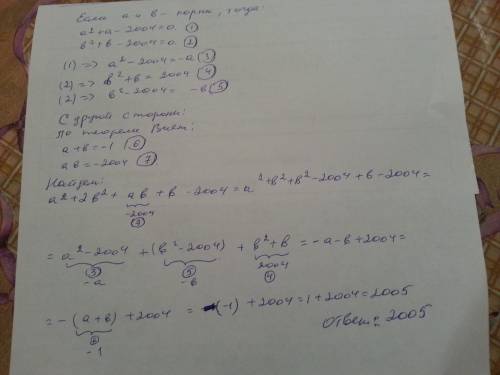 Если a и b - корни, тогда:
a²+a-2004=0. ①
b²+b-2004=0. ②
(1) => a²-2004=-a ③
(2) => b²+b=2004 ④
(2) => b²-2004= -b ⑤
С другой стороны:
По теореме Виета:
a+b=-1 ⑥
ab=-2004 ⑦.
Найдем:
a²+2b²+ab+b-2004=a²+b²+b²-2004+b-2004=
-2004
⑦
=a²-2004+(b²-2004)+b²+b=-a-b+2004=
③ ⑤ 2004
-a -b ④
=-(a+b)+2004=-(-1)+2004=1+2004=2005
⑥
-1
Ответ: 2005